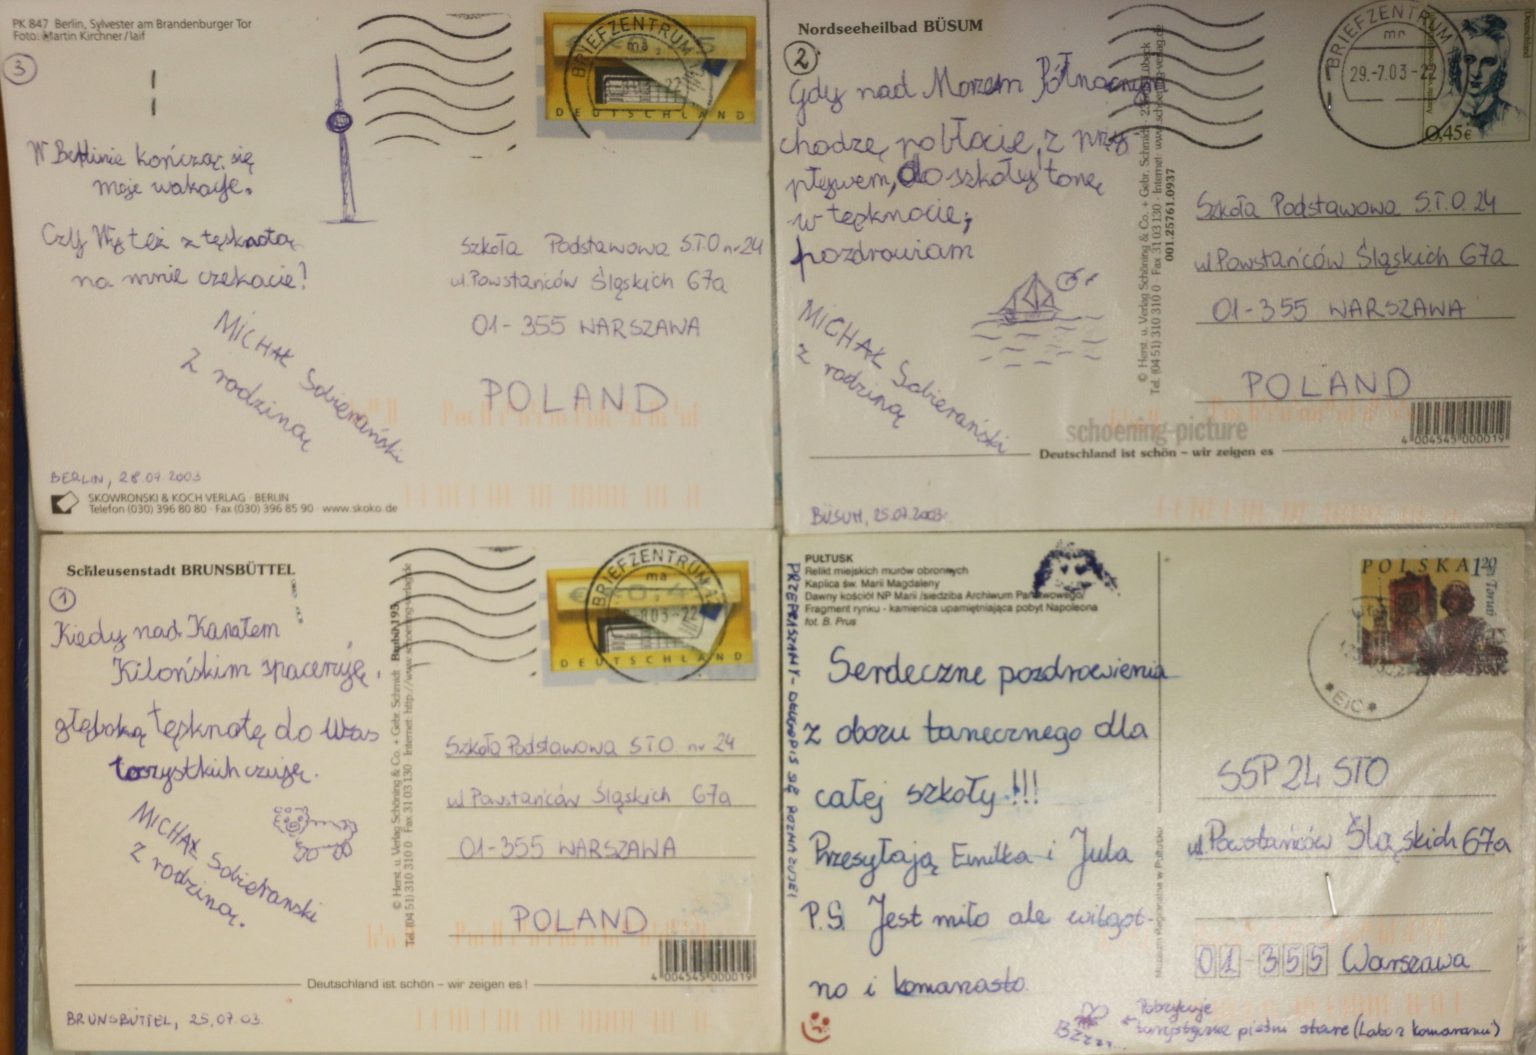 PK 847 Berlin, Sylvester am Brandenburger Tor
Foto: Martin Kirchner/laif
3
W Berlinie kończąc się
moje wakacje.
Czy Wy też z tęsknotą
na mnie czekacie!
MICHAŁ Sobierański
z rodziną
BERLIN, 28.07.2003
SKOWRONSKI & KOCH VERLAG · BERLIN
Telefon (030) 396 80 80 · Fax (030) 396 85 90 · www.skoko.de
BRIEFZENTRUM
ma
DEUTSCHLAND
Szkoła Podstawowa S.T.O nr 24
ul. Powstańców Śląskich 67a
01-355 WARSZAWA
POLAND
Nordseeheilbad BÜSUM
2
Gdy nad Morzem Północnym
chodzę po błocie, z przy
pływem, do szkoły tonę
w tęsknocie;
pozdrowiam
MICHAŁ Sobierański
z rodziną
BÜSUM, 25.07.2003
© Herst. u. Verlag Schöning & Co. + Gebr. Schmidt
Tel. (04 51) 310 310 0 · Fax 31 03 130 · Internet:
001.25761.0937
BRIEFZENTRUM
mn
29.-7.03-22
0,45€
Szkoła Podstawowa S.T.O. 24
ul Powstańców Śląskich 67a
01-355 WARSZAWA
POLAND
schoening-picture
4 004545 000019
Deutschland ist schön – wir zeigen es
Schleusenstadt BRUNSBÜTTEL
1
Kiedy nad Kanałem
Kilońskim spaceruję,
głęboką tęsknotę do Was
wszystkich czuję.
MICHAŁ Sobierański
z rodziną.
BRUNSBÜTTEL, 25.07.03.
© Herst. u. Verlag Schöning & Co. + Gebr. Schmidt
Tel. (04 51) 310 310 0 Fax 31 03 130 Internet:
BRIEFZENTRUM
ma
DEUTSCHLAND
Szkoła Podstawowa S.T.O. nr 24
ul Powstańców Śląskich 67a
01-355 WARSZAWA
POLAND
4 004545 000019
Deutschland ist schön – wir zeigen es!
PUŁTUSK
Relikt miejskich murów obronnych
Kaplica św. Marii Magdaleny
Dawny kościół NP Marii /siedziba Archiwum Państwowego/
Fragment rynku - kamienica upamiętniająca pobyt Napoleona
fot. B. Prus
PRZEPRASZAMY - DŁUGOPIS SIĘ ROZMAZUJE!
Serdeczne pozdrowienia
z obozu tanecznego dla
całej szkoły !!!
Przesyłają Emilka i Jula
P.S. Jest miło ale wilgot-
no i komarzasto.
Bzzzz...
turystyczne piętni stare (Labo z komarami)
POLSKA 1,20
Toruń
SSP 24 STO
ul. Powstańców Śląskich 67a
01-355 Warszawa